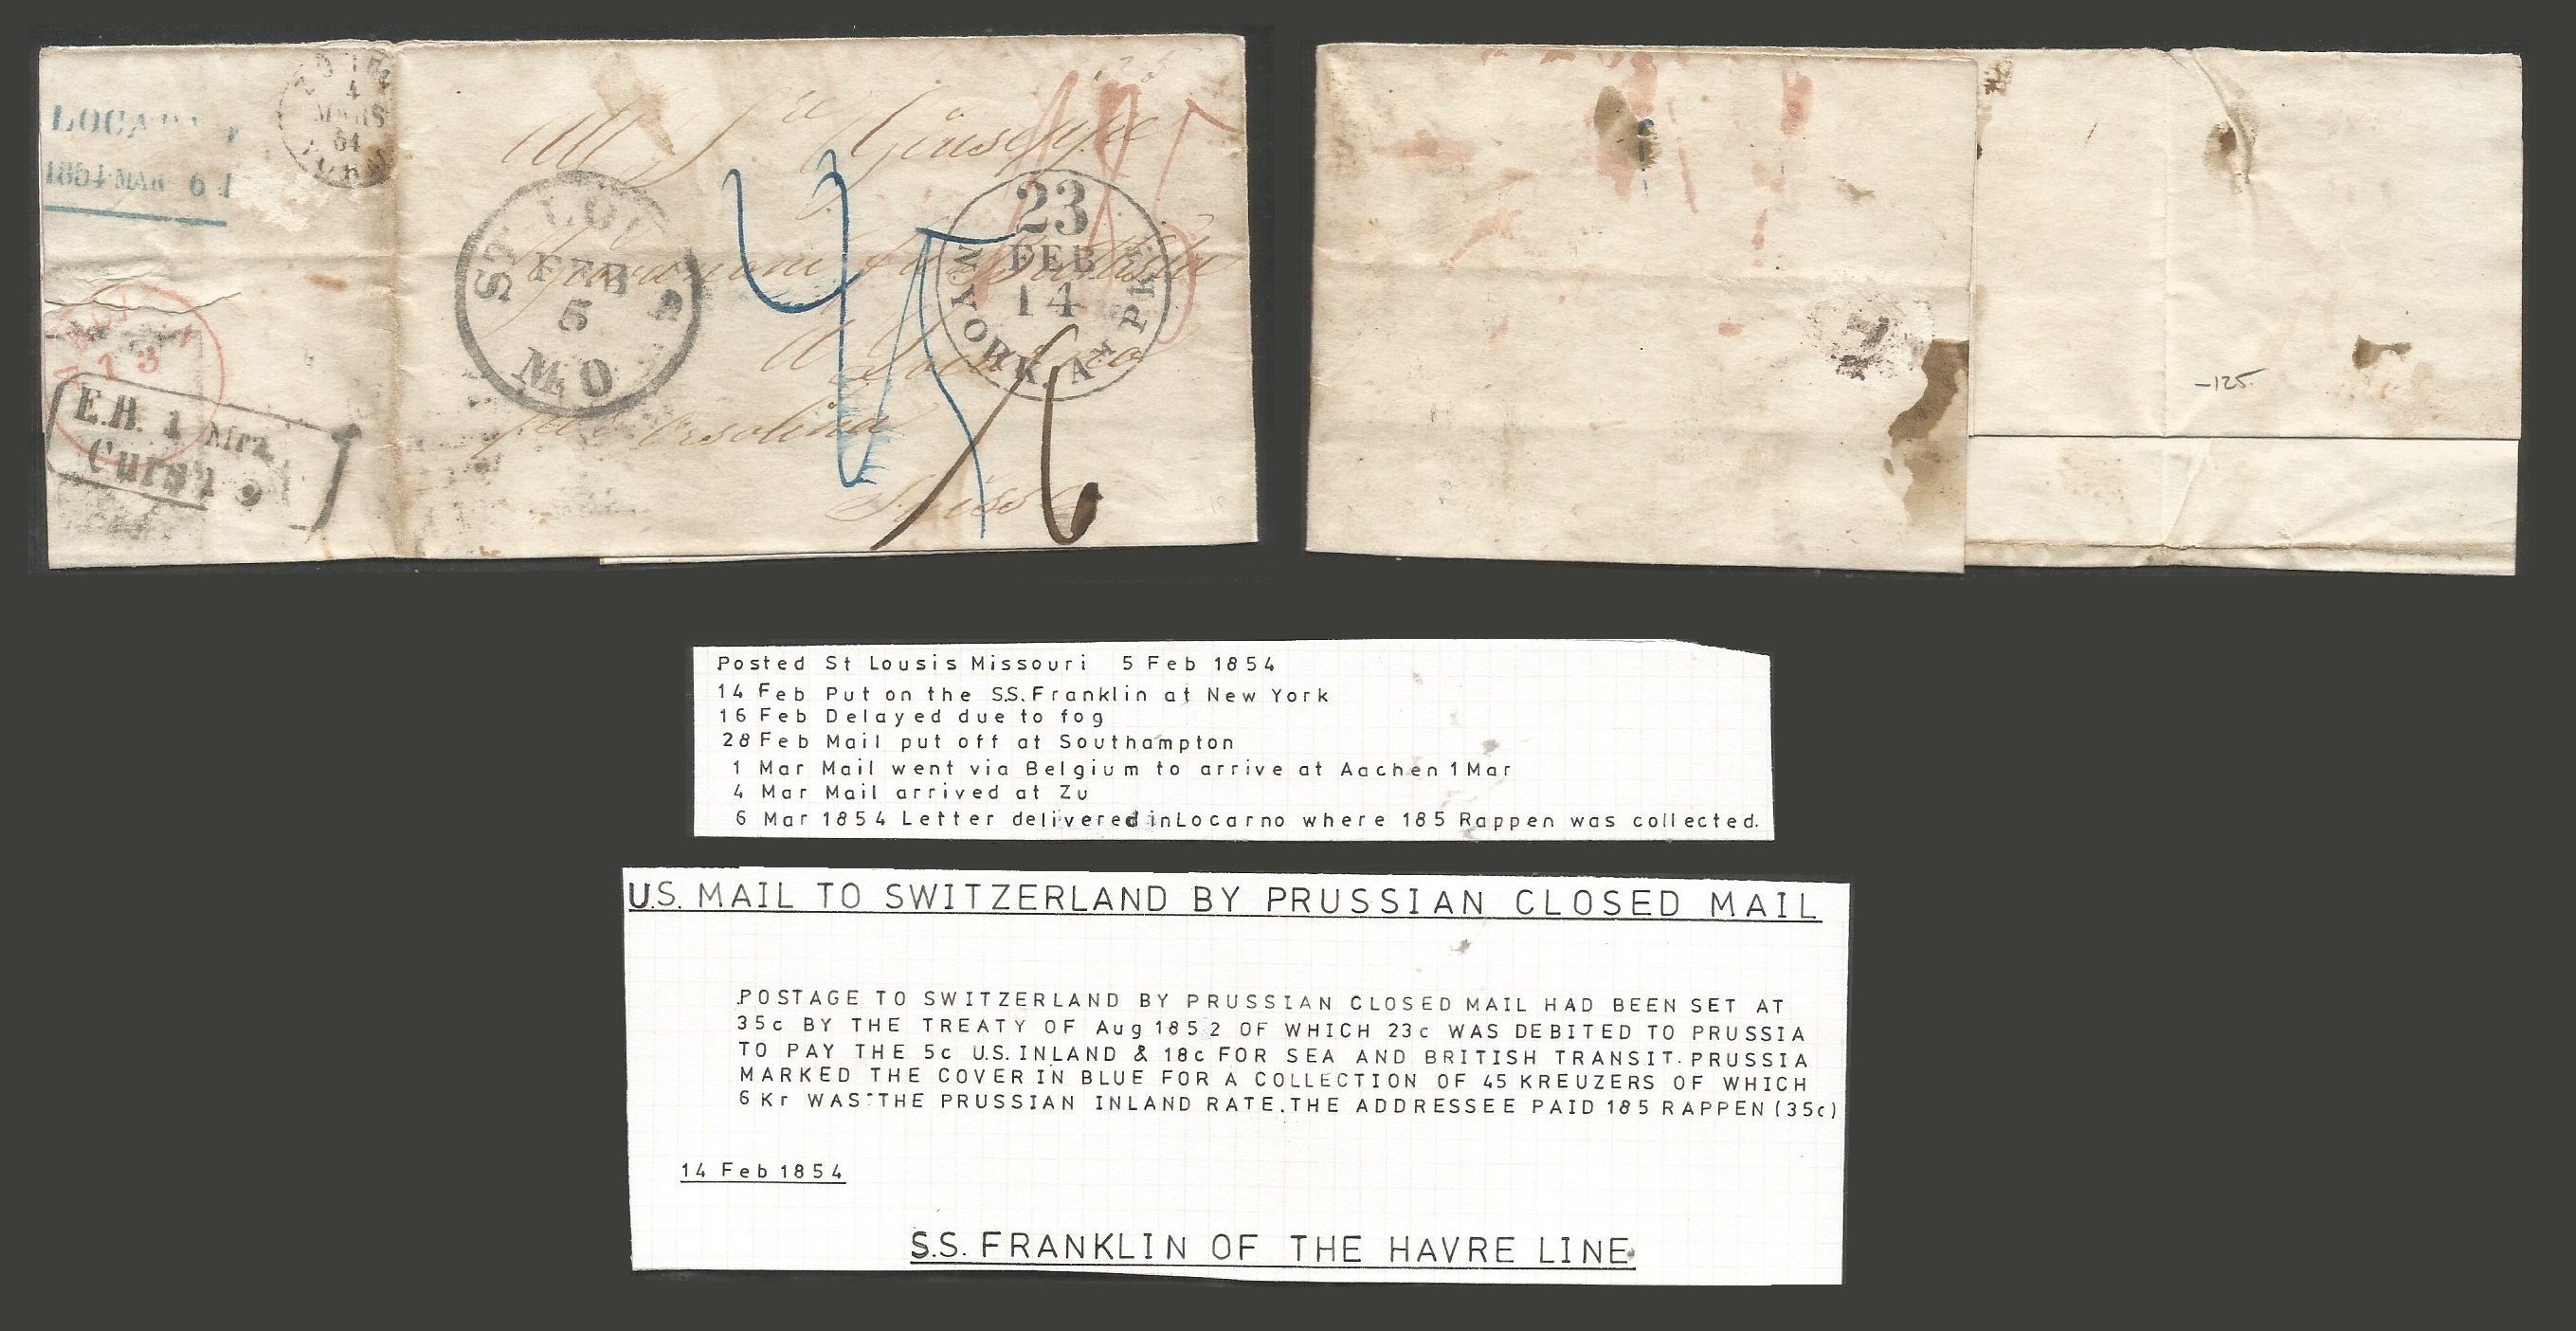 LOCA
1854 MAR 6
4
MARS
54
13
E.B. 1 Mrz
Curs 1
Giuseppe
ST LOUIS
FEB
5
MO
45
185
23
FEB
14
N. YORK. AM. PKT.
Suisse
6
-125
Posted St Lousis Missouri 5 Feb 1854
14 Feb Put on the S.S. Franklin at New York
16 Feb Delayed due to fog
28 Feb Mail put off at Southampton
1 Mar Mail went via Belgium to arrive at Aachen 1 Mar
4 Mar Mail arrived at Zu
6 Mar 1854 Letter delivered in Locarno where 185 Rappen was collected.
U.S. MAIL TO SWITZERLAND BY PRUSSIAN CLOSED MAIL
POSTAGE TO SWITZERLAND BY PRUSSIAN CLOSED MAIL HAD BEEN SET AT
35c BY THE TREATY OF Aug 1852 OF WHICH 23c WAS DEBITED TO PRUSSIA
TO PAY THE 5c U.S. INLAND & 18c FOR SEA AND BRITISH TRANSIT. PRUSSIA
MARKED THE COVER IN BLUE FOR A COLLECTION OF 45 KREUZERS OF WHICH
6 Kr WAS THE PRUSSIAN INLAND RATE. THE ADDRESSEE PAID 185 RAPPEN (35c)
14 Feb 1854
S.S. FRANKLIN OF THE HAVRE LINE